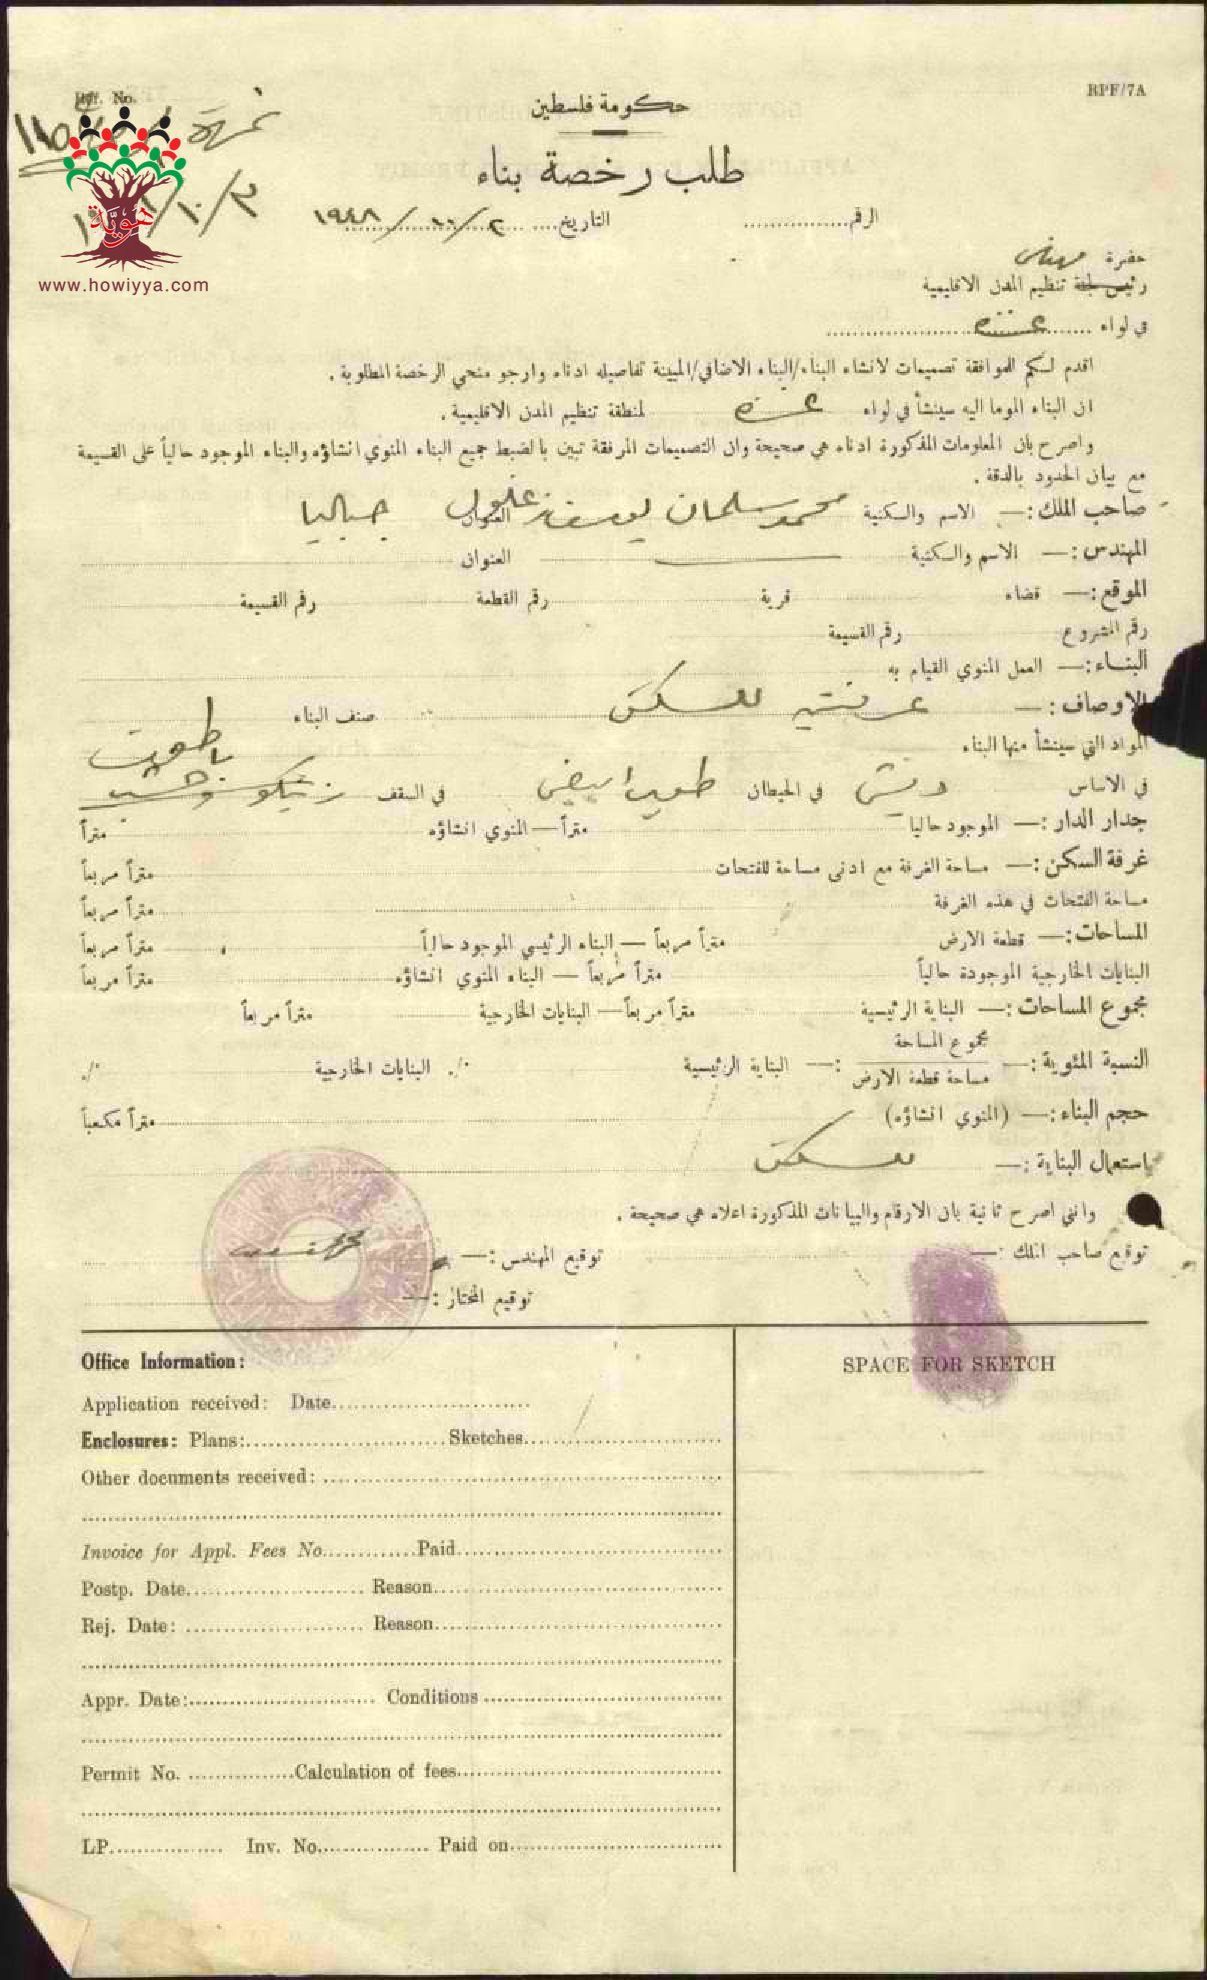 Ref. No.
RPF/7A
حكومة فلسطين
نمرة
طلب رخصة بناء
الرقم
التاريخ ٢/١٠/١٩٤٨
١٠/٣
هوية
www.howiyya.com
حضرة مهندس
رئيس لجنة تنظيم المدن الاقليمية
في لواء غزة
اقدم لكم للموافقة تصميمات لانشاء البناء/البناء الاضافي/المبينة تفاصيله ادناه وارجو منحي الرخصة المطلوبة .
ان البناء الموما اليه سينشأ في لواء غزة لمنطقة تنظيم المدن الاقليمية .
واصرح بان المعلومات المذكورة ادناه هي صحيحة وان التصميمات المرفقة تبين بالضبط جميع البناء المنوي انشاؤه والبناء الموجود حالياً على القسيمة
مع بيان الحدود بالدقة .
صاحب الملك :— الاسم والكنية محمد سلمان يوسف العنوان جباليا
المهندس :— الاسم والكنية العنوان
الموقع :— قضاء قرية رقم القطعة رقم القسيمة
رقم المشروع رقم القسيمة
البناء :— العمل المنوي القيام به
الاوصاف :— غرفتين للسكن صنف البناء
المواد التي سينشأ منها البناء
في الاساس دبش في الحيطان طوب ابيض في السقف زينكو وخشب
جدار الدار :— الموجود حاليا متراً — المنوي انشاؤه متراً
غرفة السكن :— مساحة الغرفة مع ادنى مساحة للفتحات متراً مربعاً
مساحة الفتحات في هذه الغرفة متراً مربعاً
المساحات :— قطعة الارض متراً مربعاً — البناء الرئيسي الموجود حالياً متراً مربعاً
البنايات الخارجية الموجودة حالياً متراً مربعاً — البناء المنوي انشاؤه متراً مربعاً
مجموع المساحات :— البناية الرئيسية متراً مربعاً — البنايات الخارجية متراً مربعاً
النسبة المئوية :— مجموع المساحة
مساحة قطعة الارض :— البناية الرئيسية ./· البنايات الخارجية ./·
حجم البناء :— (المنوي انشاؤه) متراً مكعباً
استعمال البناية :— للسكن
وانني اصرح ثانية بان الارقام والبيانات المذكورة اعلاه هي صحيحة .
توقيع صاحب الملك :— توقيع المهندس :—
توقيع المختار :—
Office Information:
SPACE FOR SKETCH
Application received: Date
Enclosures: Plans: Sketches
Other documents received:
Invoice for Appl. Fees No. Paid
Postp. Date Reason
Rej. Date: Reason
Appr. Date: Conditions
Permit No. Calculation of fees
LP. Inv. No. Paid on